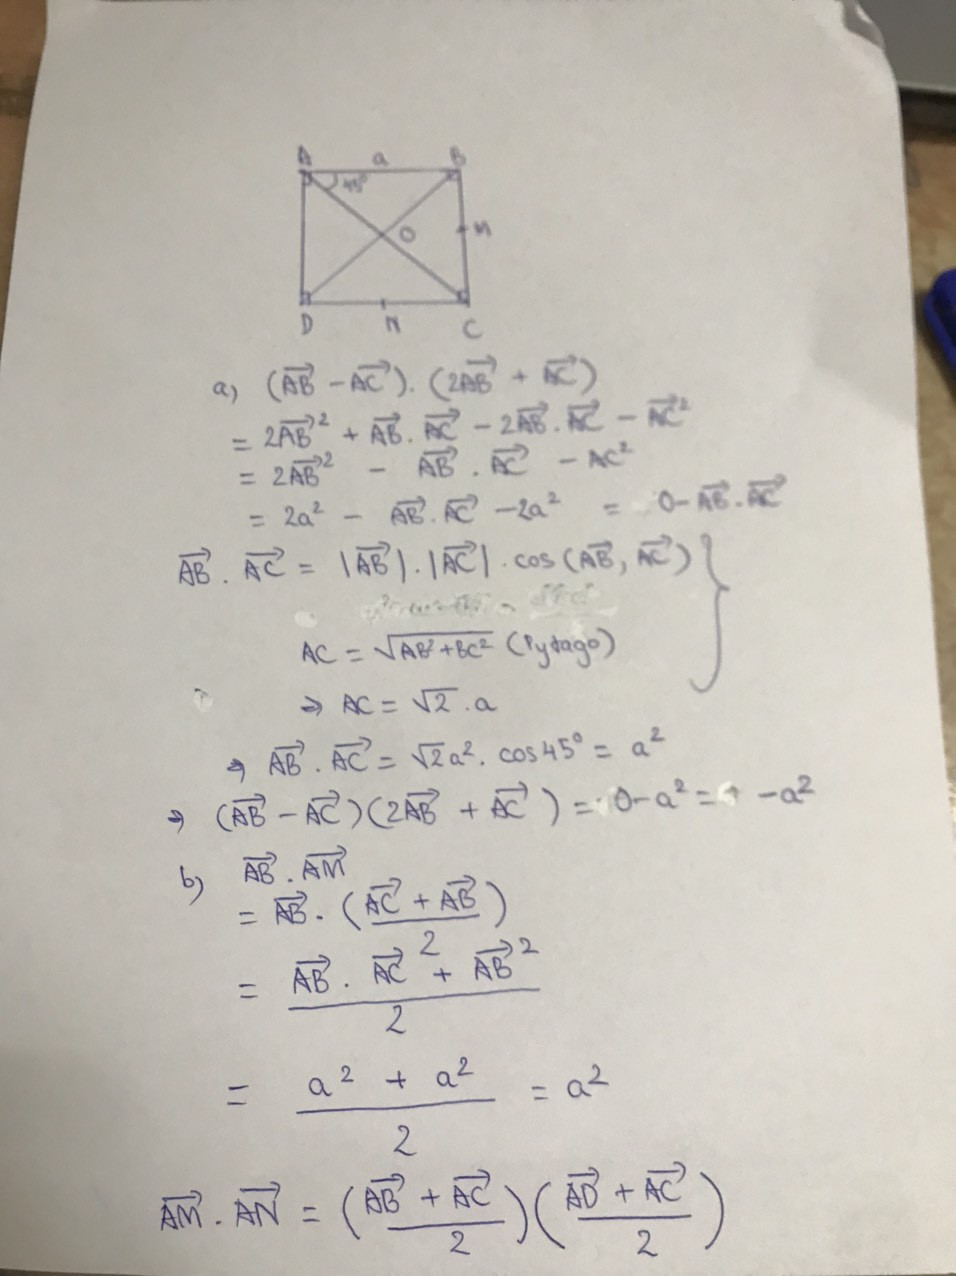 A a B
45°
O M
D N C
a) (AB→ - AC→). (2AB→ + AC→)
= 2AB→² + AB→. AC→ - 2AB→. AC→ - AC→²
= 2AB→² - AB→. AC→ - AC²
= 2a² - AB→. AC→ - 2a² = 0 - AB→. AC→
AB→. AC→ = |AB→|. |AC→|. cos (AB→, AC→) }
AC = √(AB² + BC²) (Pytago)
⇒ AC = √2 . a
⇒ AB→. AC→ = √2a². cos45° = a²
⇒ (AB→ - AC→)(2AB→ + AC→) = 0 - a² = -a²
b) AB→. AM→
= AB→. ((AC→ + AB→)/2)
= (AB→. AC→ + AB→²)/2
= (a² + a²)/2 = a²
AM→. AN→ = ((AB→ + AC→)/2)((AD→ + AC→)/2)